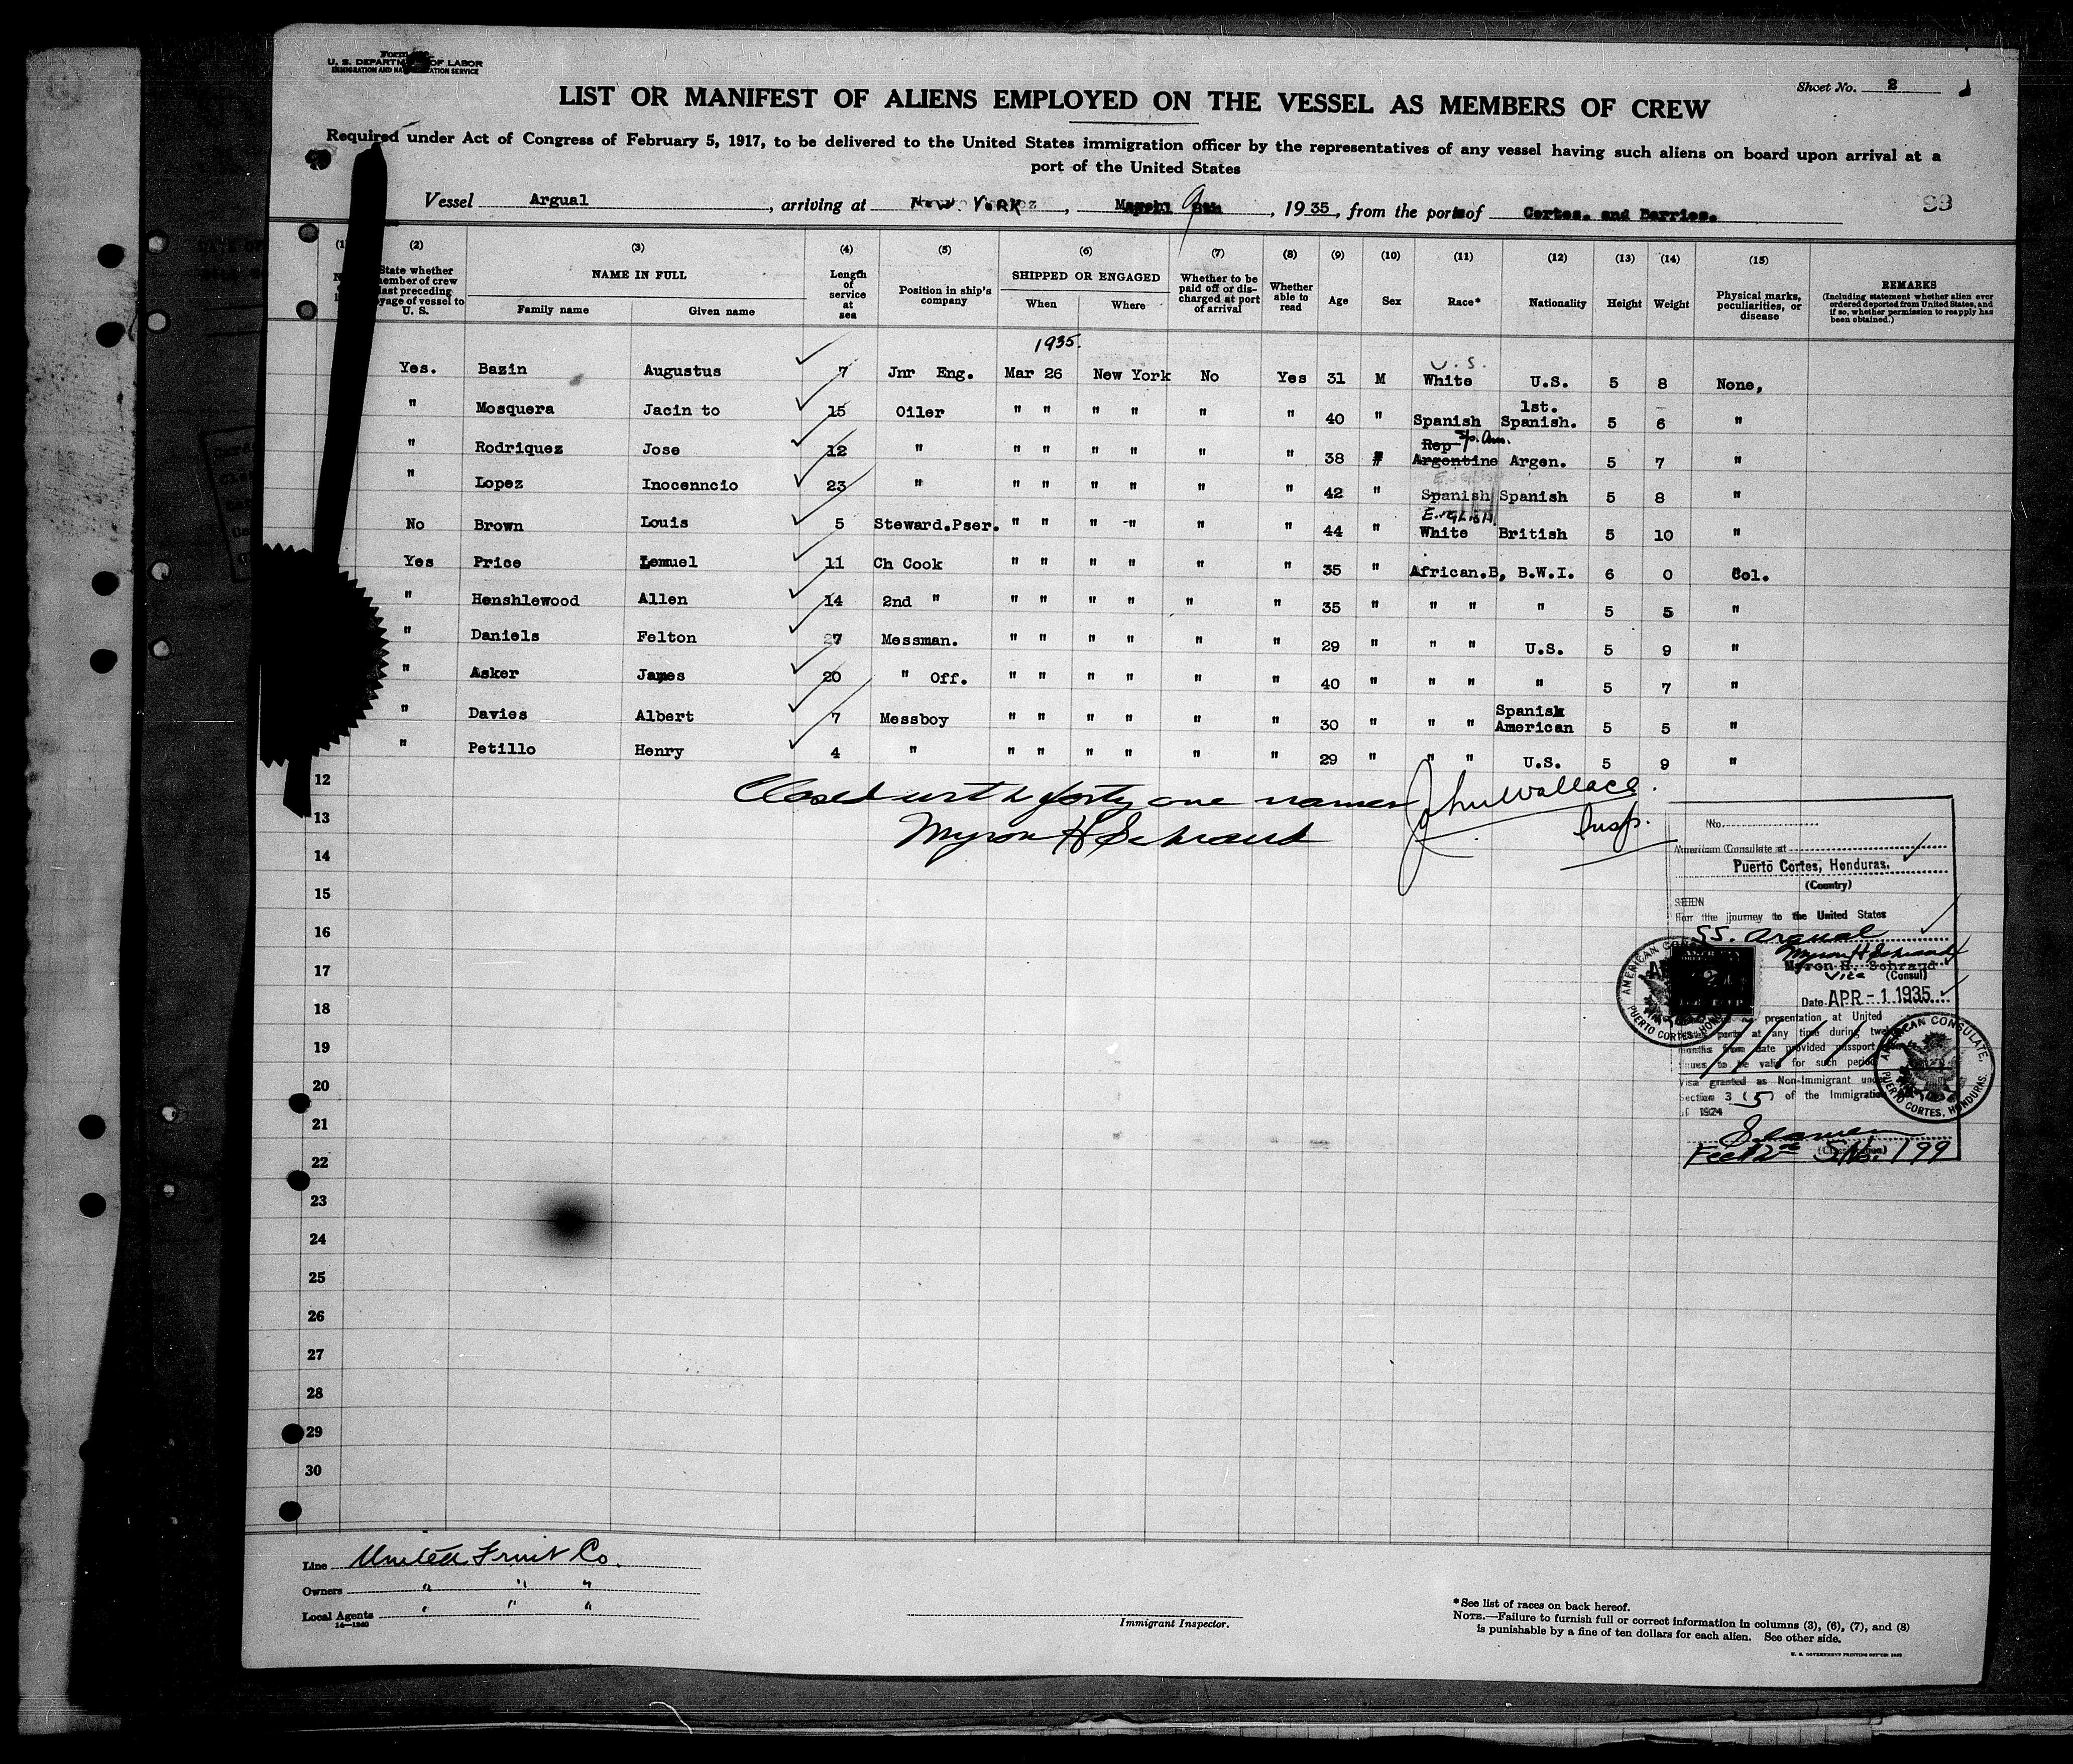 U. S. DEPARTMENT OF LABOR
IMMIGRATION AND NATURALIZATION SERVICE
Sheet No. 2
LIST OR MANIFEST OF ALIENS EMPLOYED ON THE VESSEL AS MEMBERS OF CREW
Required under Act of Congress of February 5, 1917, to be delivered to the United States immigration officer by the representatives of any vessel having such aliens on board upon arrival at a
port of the United States
Vessel Argual, arriving at New York, 9, 1935, from the ports of Cortes. and Barrios.
(2) (3) (4) (5) (6) (7) (8) (9) (10) (11) (12) (13) (14) (15)
State whether member of crew last preceding voyage of vessel to U. S. NAME IN FULL Family name Given name Length of service at sea Position in ship's company SHIPPED OR ENGAGED When Where Whether to be paid off or discharged at port of arrival Whether able to read Age Sex Race* Nationality Height Weight Physical marks, peculiarities, or disease REMARKS (Including statement whether alien ever ordered deported from United States, and if so, whether permission to reapply has been obtained.)
1935.
U.S.
Yes. Bazin Augustus 7 Jnr Eng. Mar 26 New York No Yes 31 M White U.S. 5 8 None,
" Mosquera Jacin to 15 Oiler " " " " " " 40 " Spanish 1st. Spanish. 5 6 "
" Rodriquez Jose 12 " " " " " " " 38 Rep Argentine Sp. Am. Argen. 5 7 "
" Lopez Inocenncio 23 " " " " " " " 42 " Spanish Spanish 5 8 "
No Brown Louis 5 Steward.Pser. " " " " " " 44 " English White British 5 10 "
Yes Price Lemuel 11 Ch Cook " " " " " " 35 " African.B, B.W.I. 6 0 Col.
" Henshlewood Allen 14 2nd " " " " " " " 35 " " " " 5 5 "
" Daniels Felton 27 Messman. " " " " " " 29 " " " U.S. 5 9 "
" Asker James 20 " Off. " " " " " " 40 " " " " 5 7 "
" Davies Albert 7 Messboy " " " " " " 30 " " " Spanish American 5 5 "
" Petillo Henry 4 " " " " " " " 29 " " " U.S. 5 9 "
12
Closed with forty one names Jno Wallace
13
Insp.
Myron H Schraud
14
15
16
17
18
19
20
21
22
23
24
25
26
27
28
29
30
No.
American Consulate at
Puerto Cortes, Honduras.
(Country)
SEEN
For the journey to the United States
SS. Argual
Myron H Schraud
Myron H. Schraud
Vice (Consul)
Date APR - 1 1935
presentation at United
ports at any time during twelve
months from date provided passport
tinues to be valid for such period
Visa granted as Non-Immigrant under
Section 3 (5) of the Immigration
of 1924
Seamen
Fee $2 S.No. 199
AMERICAN CONSULATE, PUERTO CORTES, HONDURAS.
AMERICAN CONSULATE, PUERTO CORTES, HONDURAS.
Line United Fruit Co.
Owners " " "
Local Agents " " "
14—1240
Immigrant Inspector.
*See list of races on back hereof.
NOTE.—Failure to furnish full or correct information in columns (3), (6), (7), and (8)
is punishable by a fine of ten dollars for each alien. See other side.